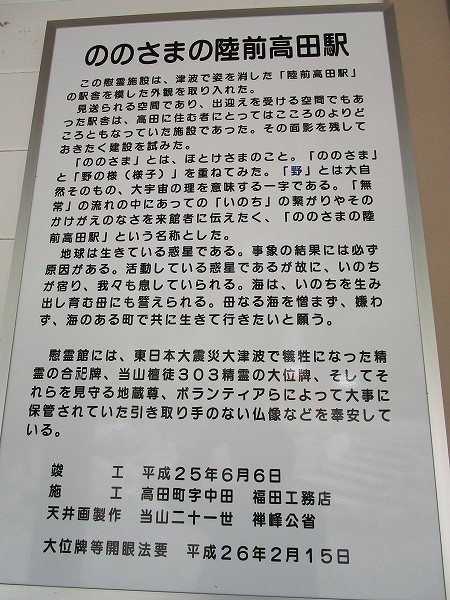 ののさまの陸前高田駅
この慰霊施設は、津波で姿を消した「陸前高田駅」
の駅舎を模した外観を取り入れた。
見送られる空間であり、出迎えを受ける空間でもあ
った駅舎は、高田に住む者にとってはこころのよりど
ころともなっていた施設であった。その面影を残して
おきたく建設を試みた。
「ののさま」とは、ほとけさまのこと。「ののさま」
と「野の様（様子）」を重ねてみた。「野」とは大自
然そのもの、大宇宙の理を意味する一字である。「無
常」の流れの中にあっての「いのち」の繋がりやその
かけがえのなさを来館者に伝えたく、「ののさまの陸
前高田駅」という名称とした。
地球は生きている惑星である。事象の結果には必ず
原因がある。活動している惑星であるが故に、いのち
が宿り、我々も息していられる。海は、いのちを生み
出し育む母にも譬えられる。母なる海を憎まず、嫌わ
ず、海のある町で共に生きて行きたいと願う。
慰霊館には、東日本大震災大津波で犠牲になった精
霊の合祀牌、当山檀徒303精霊の大位牌、そしてそ
れらを見守る地蔵尊、ボランティアらによって大事に
保管されていた引き取り手のない仏像などを奉安して
いる。
竣　　工　平成25年6月6日
施　　工　高田町字中田　福田工務店
天井画製作　当山二十一世　禅峰公省
大位牌等開眼法要　平成26年2月15日